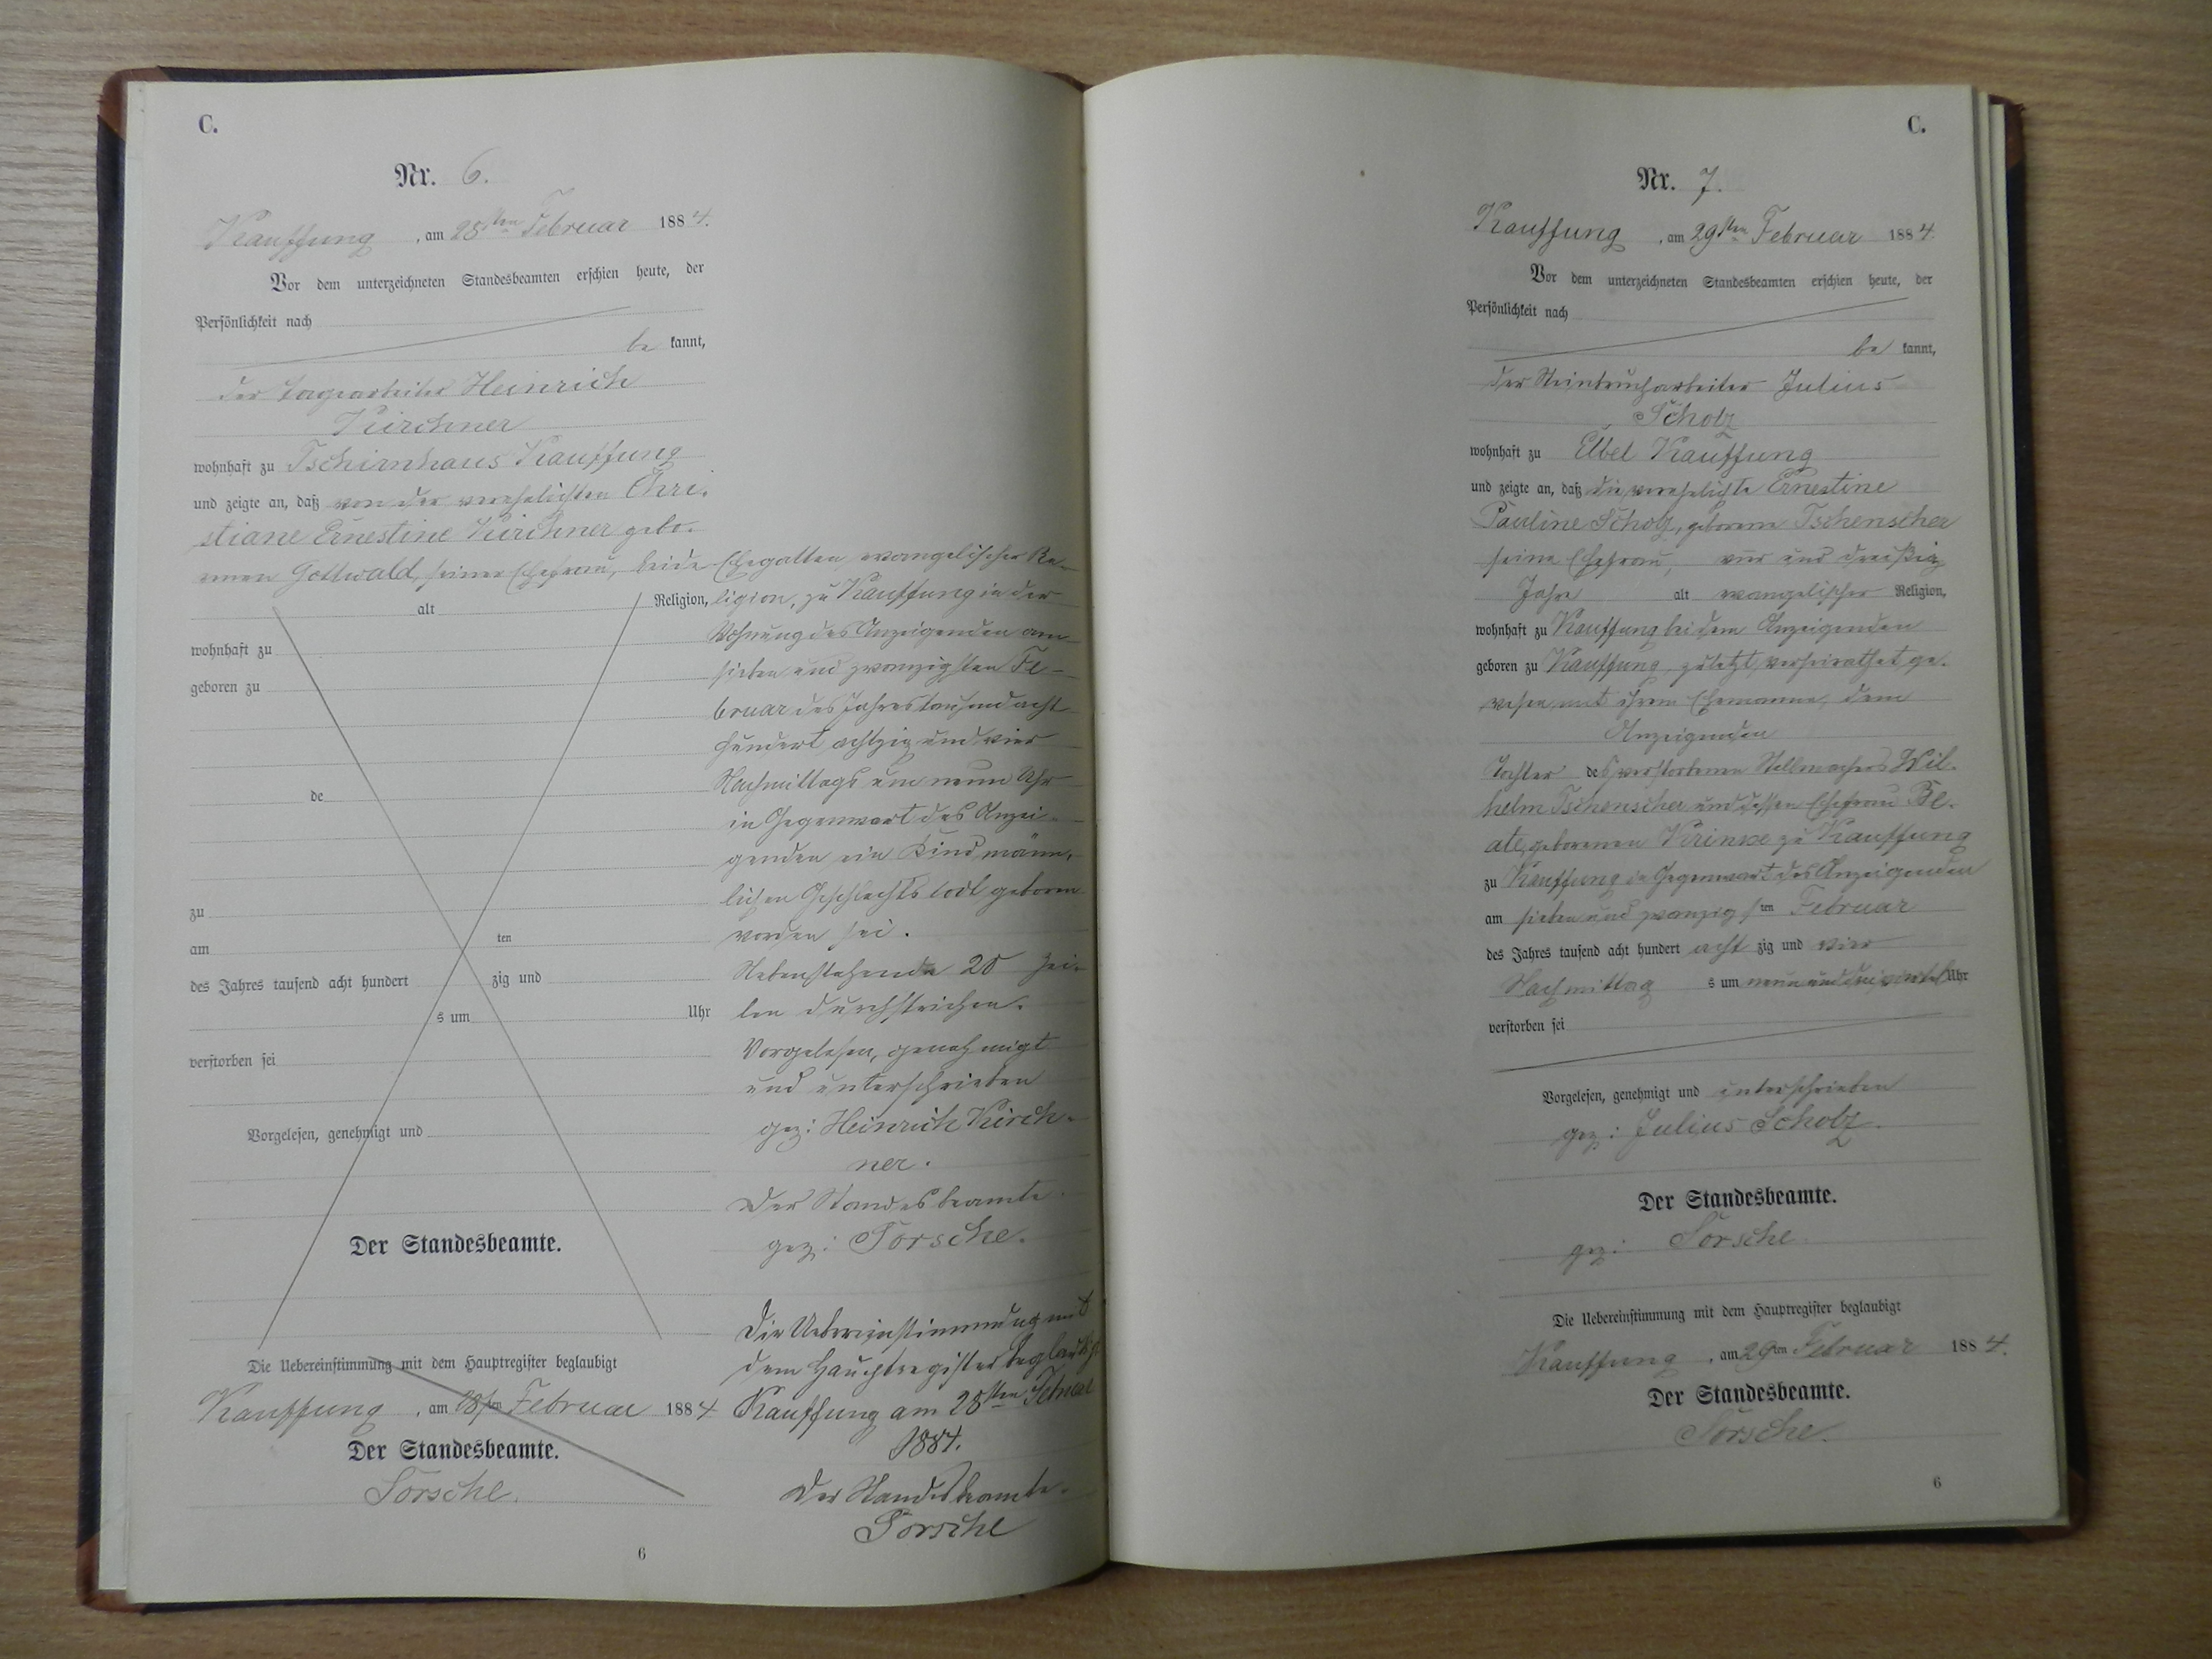 C.
Nr. 6.
Kauffung, am 28sten Februar 1884.
Vor dem unterzeichneten Standesbeamten erschien heute, der
Persönlichkeit nach
be kannt,
der Tagearbeiter Heinrich
Kirchner
wohnhaft zu Tschirnhaus Kauffung
und zeigte an, daß von der verehelichten Chri-
stiane Ernestine Kirchner gebo-
renen Gottwald, seiner Ehefrau, beide
alt Religion,
wohnhaft zu
geboren zu
de
zu
am ten
des Jahres tausend acht hundert zig und
s um Uhr
verstorben sei
Vorgelesen, genehmigt und
Der Standesbeamte.
Die Uebereinstimmung mit dem Hauptregister beglaubigt
Kauffung, am 28sten Februar 1884
Der Standesbeamte.
6
Ehegatten evangelischer Re-
ligion, zu Kauffung in der
Wohnung des Anzeigenden am
sieben und zwanzigsten Fe-
bruar des Jahres tausend acht
hundert achtzig und vier
Nachmittags um neun Uhr
in Gegenwart des Anzei-
genden ein Kind männ-
lichen Geschlechts todt geboren
worden sei.
Nebenstehende 20 Zei-
len durchstrichen.
Vorgelesen, genehmigt
und unterschrieben
gez: Heinrich Kirch-
ner.
Der Standesbeamte
gez:
Die Uebereinstimmung mit
dem Hauptregister beglaubigt
Kauffung am 28sten Februar
1884.
Der Standesbeamte.
C.
Nr. 7.
Kauffung, am 29sten Februar 1884
Vor dem unterzeichneten Standesbeamten erschien heute, der
Persönlichkeit nach
be kannt,
der Steinbrucharbeiter Julius
Scholz
wohnhaft zu Elbel Kauffung
und zeigte an, daß die verehelichte Ernestine
Pauline Scholz, geborene Tschenscher
seine Ehefrau, vier und dreißig
Jahre alt evangelischer Religion,
wohnhaft zu Kauffung bei dem Anzeigenden
geboren zu Kauffung, zuletzt verheirathet ge-
wesen mit ihrem Ehemanne, dem
Anzeigenden
Tochter des verstorbenen Stellmachers Wil-
helm Tschenscher und dessen Ehefrau Be-
ate, geborenen zu Kauffung
zu Kauffung in Gegenwart des Anzeigenden
am sieben und zwanzigsten Februar
des Jahres tausend acht hundert acht zig und vier
Nachmittag s um neun und drei viertel Uhr
verstorben sei
Vorgelesen, genehmigt und unterschrieben
gez: Julius Scholz.
Der Standesbeamte.
gez:
Die Uebereinstimmung mit dem Hauptregister beglaubigt
Kauffung, am 29ten Februar 1884.
Der Standesbeamte.
6